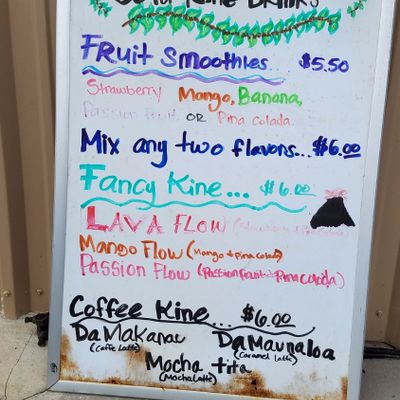 Kine Drinks
Fruit Smoothies... $5.50
Strawberry Mango, Banana,
Passion Fruit OR Pina colada.
Mix any two flavors... $6.00
Fancy Kine... $6.00
LAVA FLOW (Strawberry + Pina colada)
Mango Flow (Mango + Pina colada)
Passion Flow (Passion fruit + Pina colada)
Coffee Kine... $6.00
Da Makanac Da Maunaloa
(Caffe Latte) (Caramel latte)
Mocha tita
(Mocha Latte)